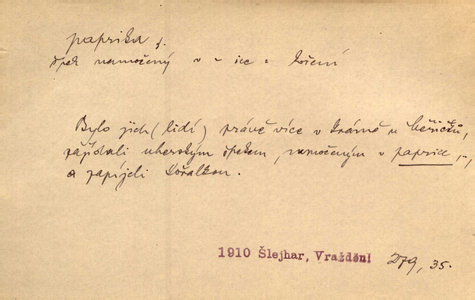 paprika f.
špek namočený v - ice = koření
Bylo jich (lidí) právě více v krámě u
zajídali uherským špekem, namočeným v paprice,
a zapíjeli kořalkou.
1910 Šlejhar, Vraždění 279, 35.